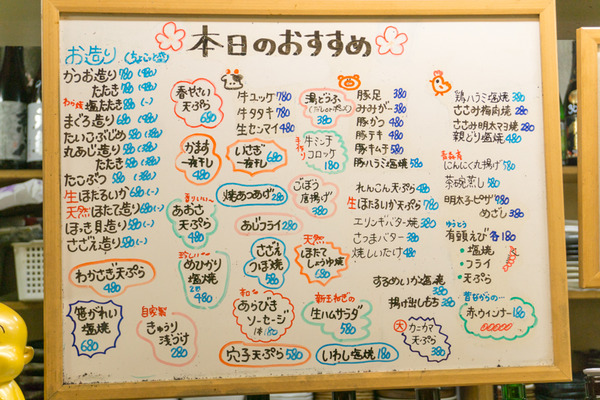 本日のおすすめ
お造り
かつお造り 780
たたき 780
塩たたき 880 (-)
まぐろ造り 680
たいこぶじめ 380
丸あじ造り 580
たたき 580
たこぶつ 380
生ほたるいか 580 (-)
天然ほたて造り 680 (-)
ほっき貝造り 580 (-)
さざえ造り 580 (-)
わかさぎ天ぷら
480
笹がれい
塩焼
680
自家製
きゅうり
浅づけ
280
春やさい
天ぷら
680
かますー
夜干し
480
あおさ
天ぷら
480
珍しい〜
めひかり
塩焼
480
牛ユッケ 780
牛タタキ 780
生センマイ 480
いさぎ
一夜干し
680
焼あつあげ 280
あじフライ 280
さざえ
つぼ焼
580
和な
あらびき
ソーセージ
1本 180
穴子天ぷら 580
湯どうふ
380
手作り
牛ミンチ
コロッケ
180
ごぼう
唐揚げ
380
天然
ほたて
しょうゆ焼
680
新玉ねぎの
生ハムサラダ
580
いわし塩焼 180
豚足 380
みみがー 380
豚かつ 480
豚テキ 480
豚キムチ 580
豚ハラミ塩焼 580
れんこん天ぷら 480
生ほたるいか天ぷら 780
エリンギバター焼 380
さつまバター 380
焼しいたけ 480
するめいか塩焼 380
揚げ出しもち 380
大 カーカマ
天ぷら
380
鶏ハラミ塩焼 380
ささみ梅肉焼 280
ささみ明太マヨ焼 280
親どり塩焼 580
青森産
にんにく丸揚げ 580
茶碗蒸し 580
明太子ピザ 780
めざし 380
ゆうとう
有頭えび 各180
・塩焼
・フライ
・天ぷら
昔ながらの…
赤ウィンナー 180